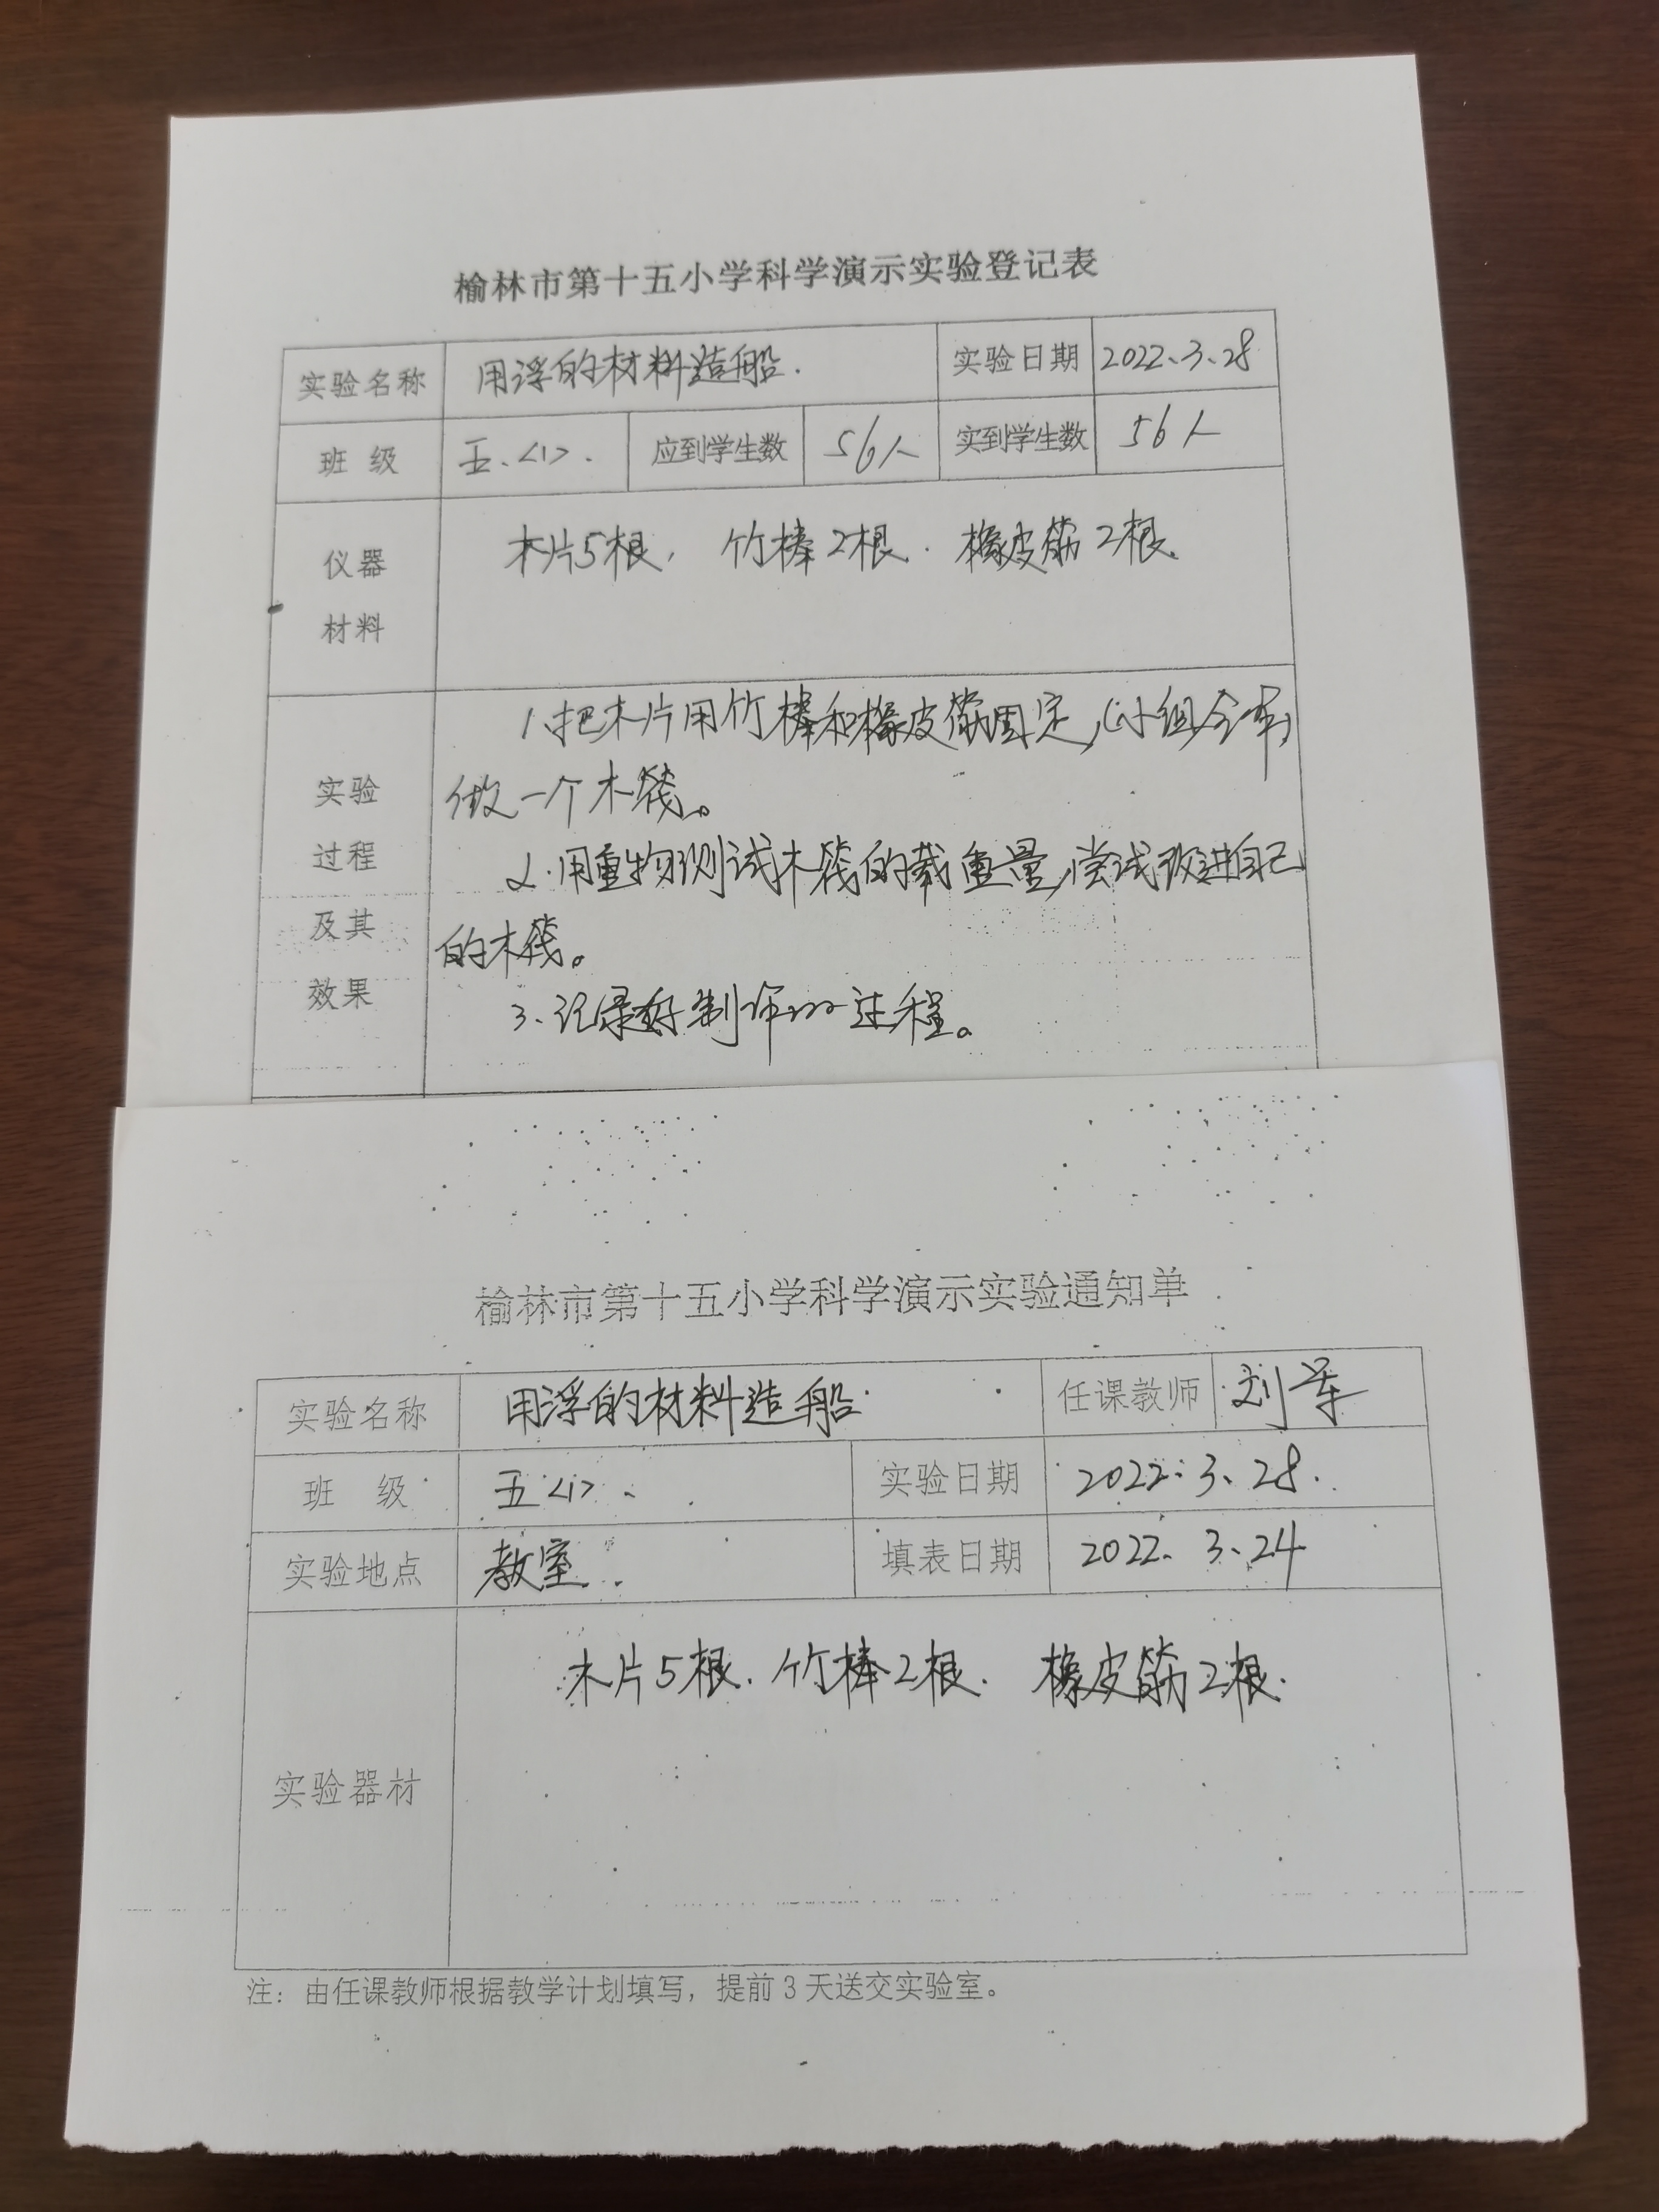 榆林市第十五小学科学演示实验登记表
实验名称 用浮的材料造船. 实验日期 2022、3、28
班 级 五、<1>. 应到学生数 56人 实到学生数 56人
仪器
材料
木片5根, 竹棒2根. 橡皮筋2根.
实验
过程
及其
效果
1、把木片用竹棒和橡皮筋固定,(小组合作)
做一个木筏。
2.用重物测试木筏的载重量,尝试改进自己
的木筏。
3、记录好制作 过程。
榆林市第十五小学科学演示实验通知单
实验名称 用浮的材料造船 任课教师 刘军
班 级 五<1>、 实验日期 2022、3、28.
实验地点 教室. 填表日期 2022、3、24
实验器材 木片5根. 竹棒2根. 橡皮筋2根.
注：由任课教师根据教学计划填写，提前 3 天送交实验室。